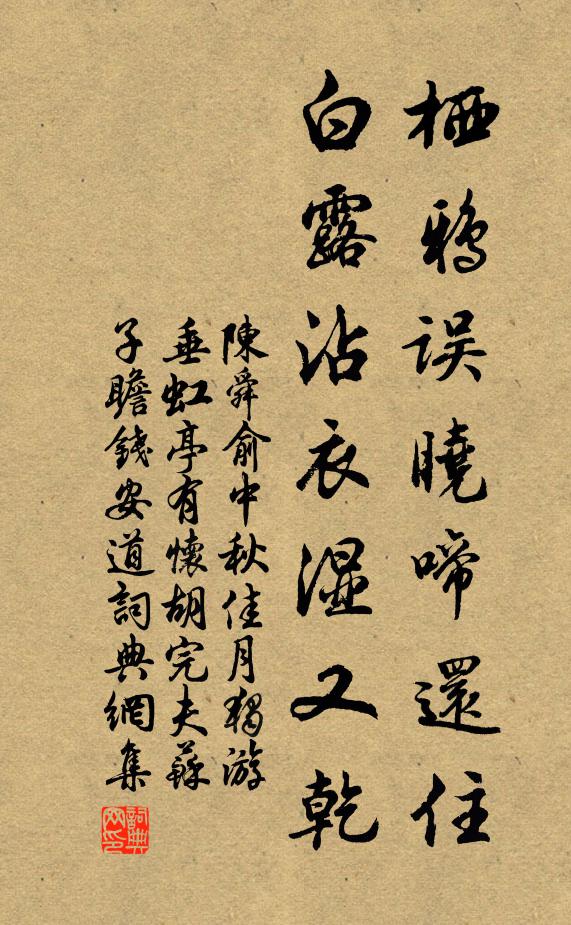 栖鴉误曉啼還住
白露沾衣湿又乾
陳舜俞中秋佳月獨游
垂虹亭有懷胡完夫蘇
子瞻錢安道詞典網集
詞典网印